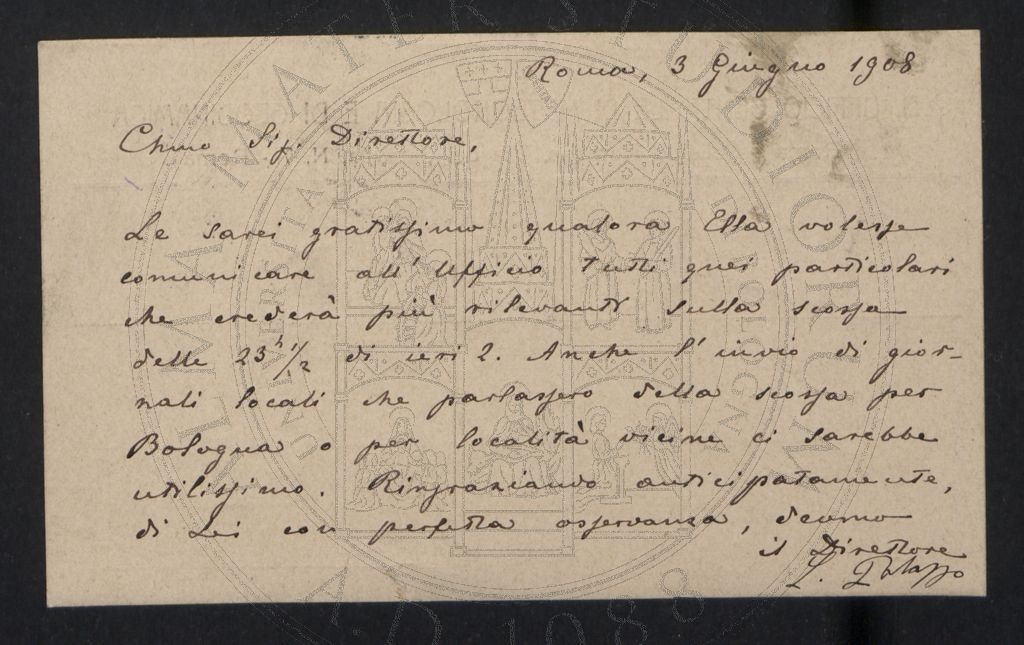 Roma, 3 Giugno 1908
Chmo Sig. Direttore,
Le sarei gratissimo qualora Ella volesse
comunicare all' Ufficio tutti quei particolari
che crederà più rilevanti sulla scossa
delle 23h 1/2 di ieri 2. Anche l' invio di gior-
nali locali che parlassero della scossa per
Bologna o per località vicine ci sarebbe
utilissimo. Ringraziando anticipatamente,
di Lei con perfetta osservanza, devmo
il Direttore
L. Palazzo
ALMA MATER STUDIORUM
UNIVERSITÀ DI BOLOGNA
A.D. 1088